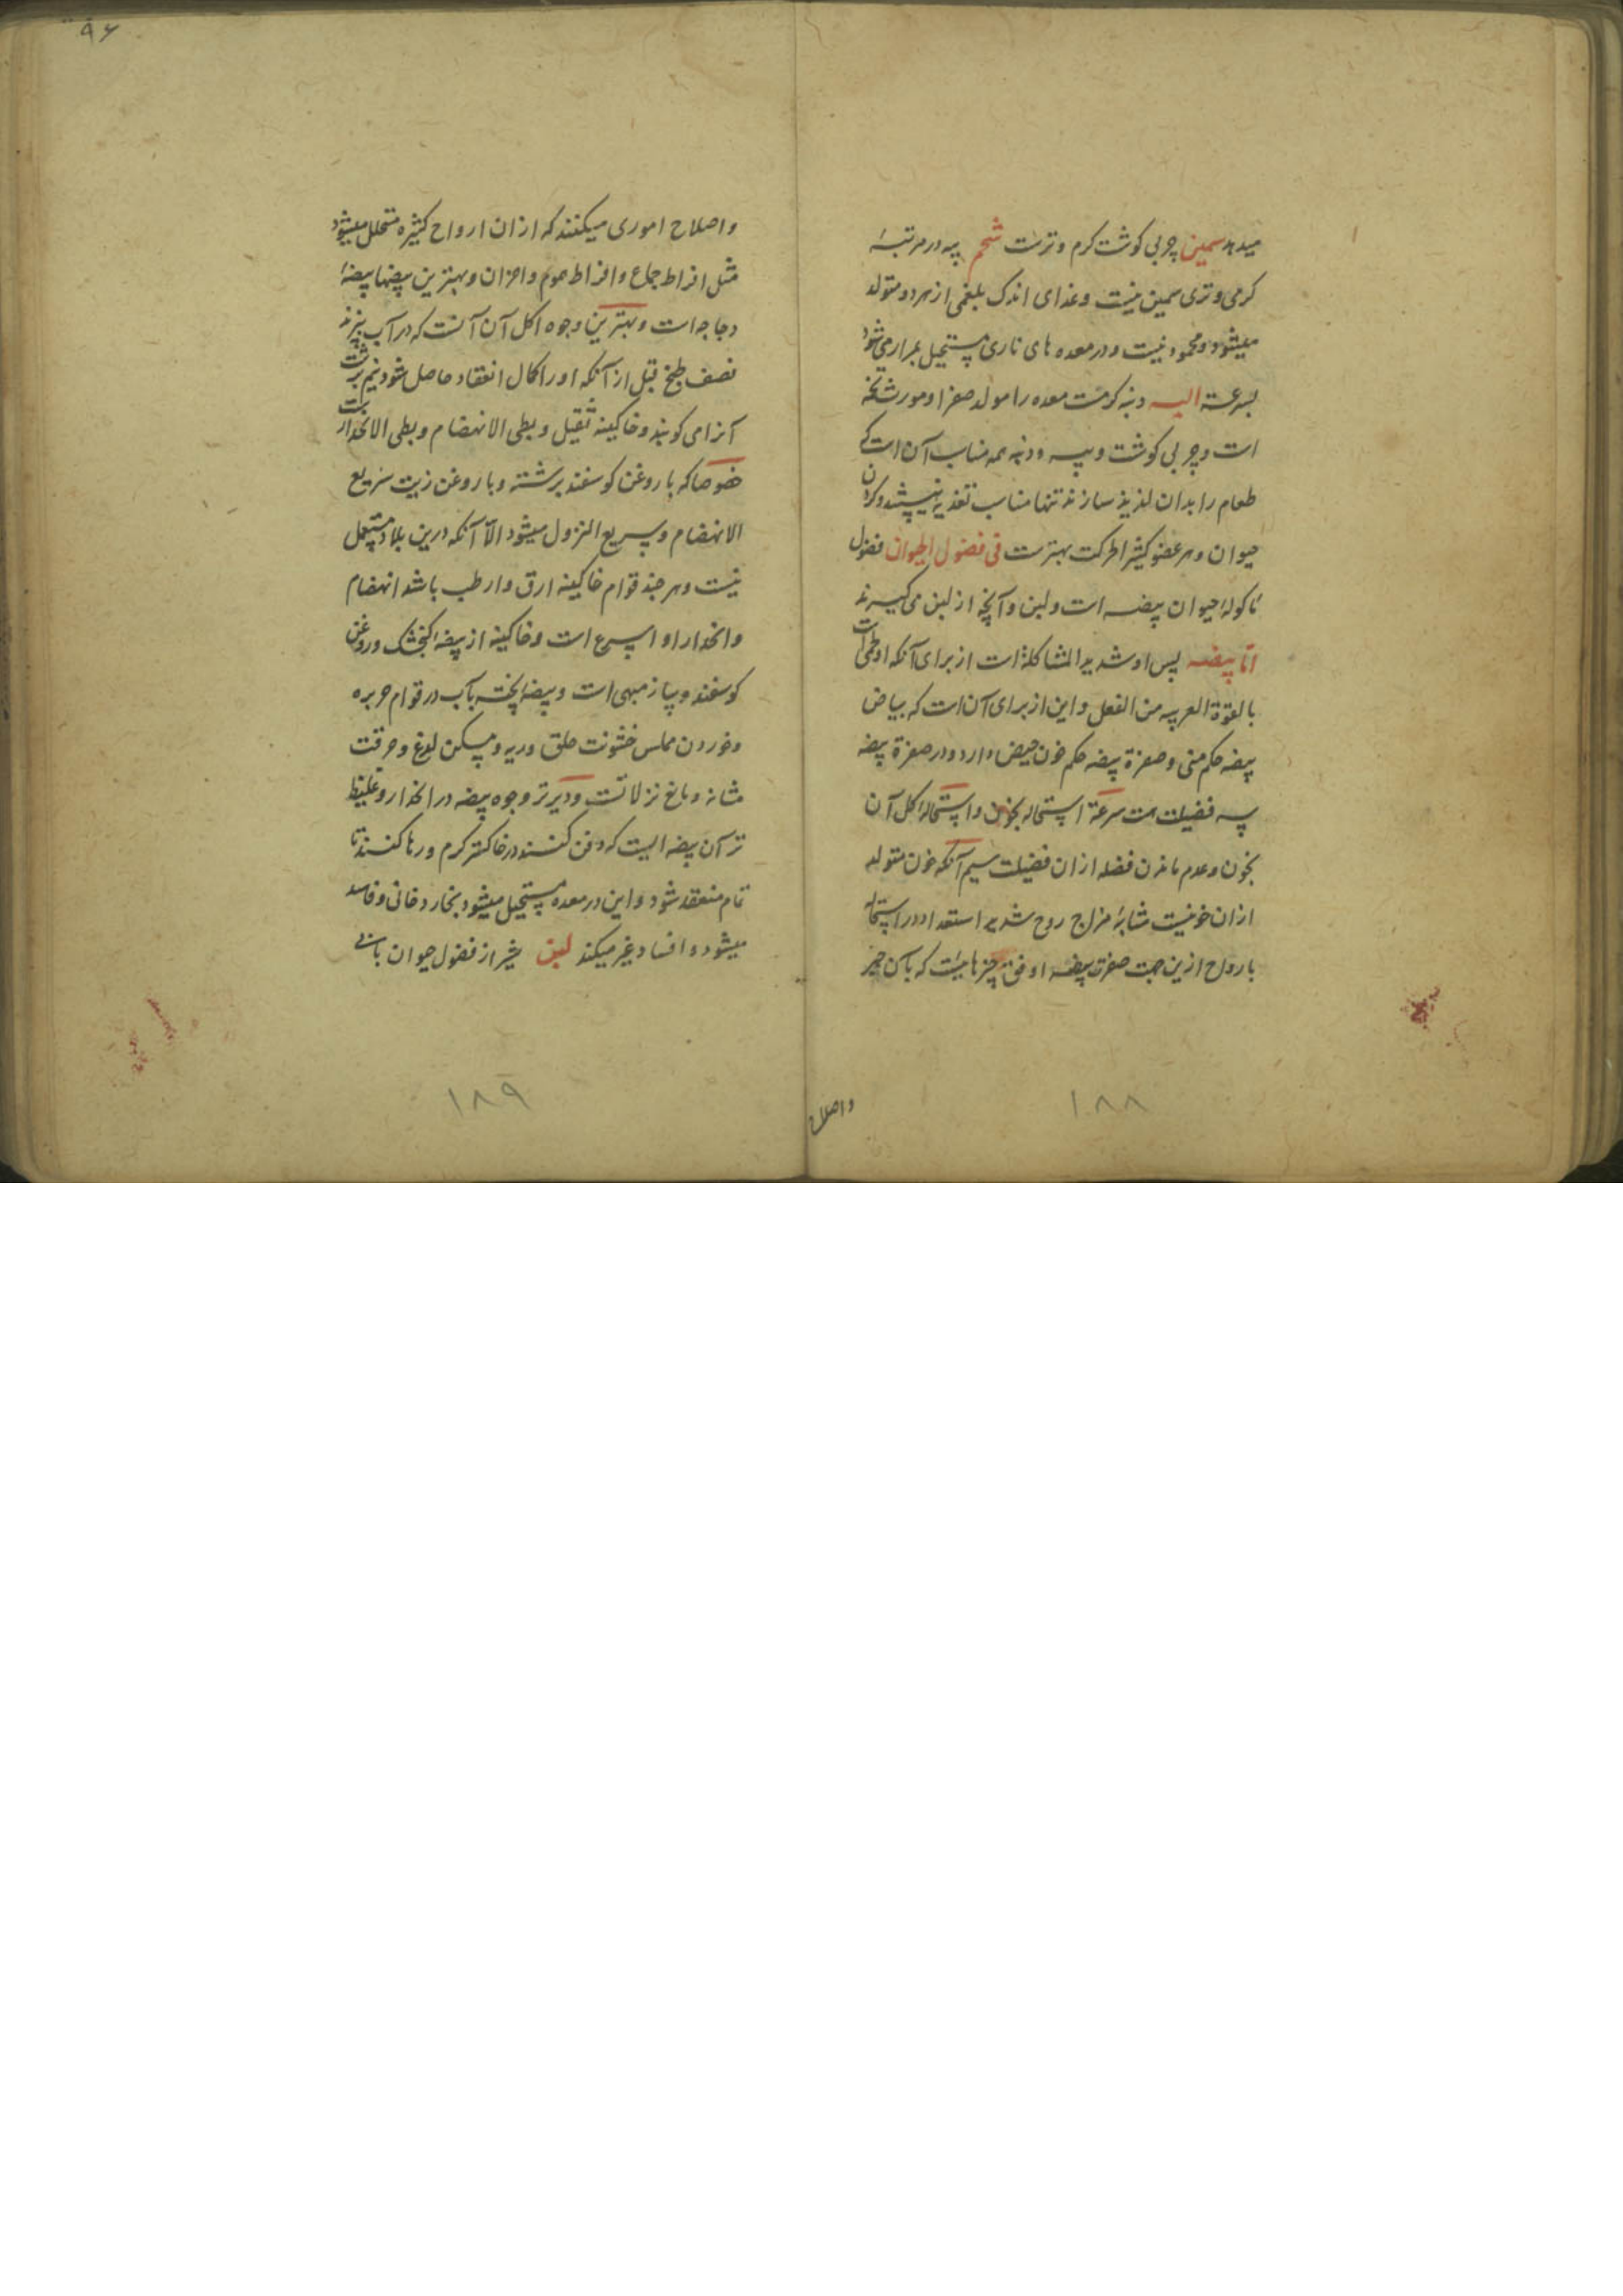 میدهد سمین چربی کوشت کرم و ترست شحم پیه در مرتبهٔ
کرمی و تری سمین نیست و غذای اندک بلغمی از هر دو متولد
میشود و محمود نیست و در معده های ناری مستحیل بمرار می شود
بسرعته الیه دنبه کوست معده را مولد صفرا و مورث تخمه
است و چربی کوشت و پیه و دنبه همه مناسب آن است که
طعام را بدان لذیذ سازند تنها مناسب تغذیه نیستند و کردن
حیوان و هر عضو کثیر الحرکت بهترست فی فضول الحیوان فضول
ماکولهٔ حیوان بیضه است و لبن و آنچه از لبن می کیرند
اما بیضه پس او شدید المشاکلة است از برای آنکه او لحمی است
بالقوة القریبه من الفعل و این از برای آن است که بیاض
بیضه حکم منی و صفرة بیضه حکم خون حیض دارد و در صفرة بیضه
سه فضیلت هست سرعة استحاله بخون و استحالهٔ کل آن
بخون و عدم ماندن فضله از ان فضیلت سیم آنکه خون متولد
ازان خونیست مشابهٔ مزاج روح شدید استعداد در استحاله
بارواح ازین جهت صفرت بیضه اوفق چیزهایست که بآن جبر
واصلاح
۱۸۸
۹۶
واصلاح اموری میکنند که ازان ارواح کثیره متحلل میشود
مثل افراط جماع و افراط هموم و احزان و بهترین بیضها بیضهٔ
دجاجه است و بهترین وجوه اکل آن آنست که در آب پزند
نصف طبخ قبل از آنکه او را کمال انعقاد حاصل شود نیم برشت
آنرا می کویند و خاکینه ثقیل و بطی الانهضام و بطی الانحدار است
خصوصا که با روغن کوسفند برشته و با روغن زیت سریع
الانهضام و سریع النزول میشود الا آنکه درین بلاد مستعمل
نیست و هر چند قوام خاکینه ارق و ارطب باشد انهضام
و انحدار او اسرع است و خاکینه از بیضهٔ کنجشک و روغن
کوسفند و پیاز مبهی است و بیضهٔ پخته بآب در قوام حریره
و خوردن مملس خشونت حلق و ریه و مسکن لدغ و حرقت
مثانه و مانع نزلاتست و دیرتر وجوه بیضه در انحدار و غلیظ
تر آن بیضه ایست که دفن کنند در خاکستر کرم و رها کنند تا
تمام منعقد شود و این در معده مستحیل میشود بخار دخانی و فاسد
میشود و افساد غیر میکند لبن شیر از فضول حیوان
۱۸۹